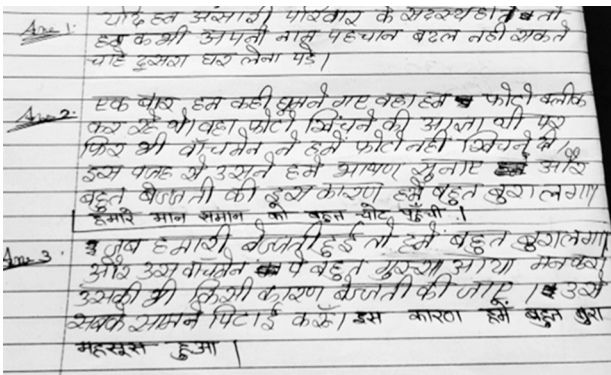 Ans 1. यदि हम अंसारी परिवार के सदस्य होते तो
हम कभी अपनी नाम पहचान बदल नही सकते
चाहे दुसरा घर लेना पडे।
Ans 2. एक बार हम कही घुमने गए वहा हम फोटो क्लीक
कर रहे थे। वहा फोटो खिंचने की आज्ञा थी पर
फिर भी वॉचमेन ने हमे फोटो नही खिंचने दी।
इस वजह से उसने हमे भाषण सुनाए और
बहुत बेज्जती की इस कारण हमे बहुत बुरा लगा।
हमारे मान समान को बहुत चोट पहुँची।
Ans 3. जब हमारी बेज्जती हुई तो हमे बहुत बुरा लगा
और उस वॉचमेन पे बहुत गुस्सा आया मन करा
उसकी भी किसी कारण बेज्जती की जाए। उसे
सबके सामने पिटाई करूँ। इस कारण हमें बहुत बुरा
महसूस हुआ।